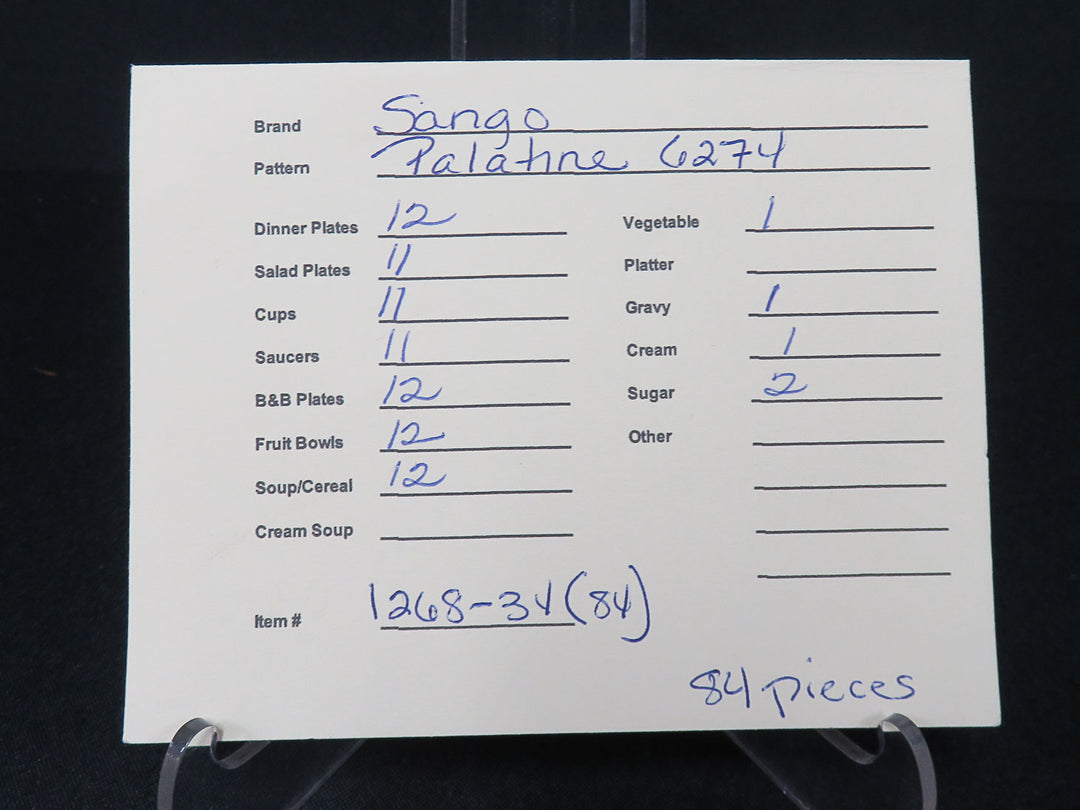 Brand Sango
Pattern Palatine 6274
Dinner Plates 12 Vegetable 1
Salad Plates 11 Platter
Cups 11 Gravy 1
Saucers 11 Cream 1
B&B Plates 12 Sugar 2
Fruit Bowls 12 Other
Soup/Cereal 12
Cream Soup
Item # 1268-34(84)
84 pieces